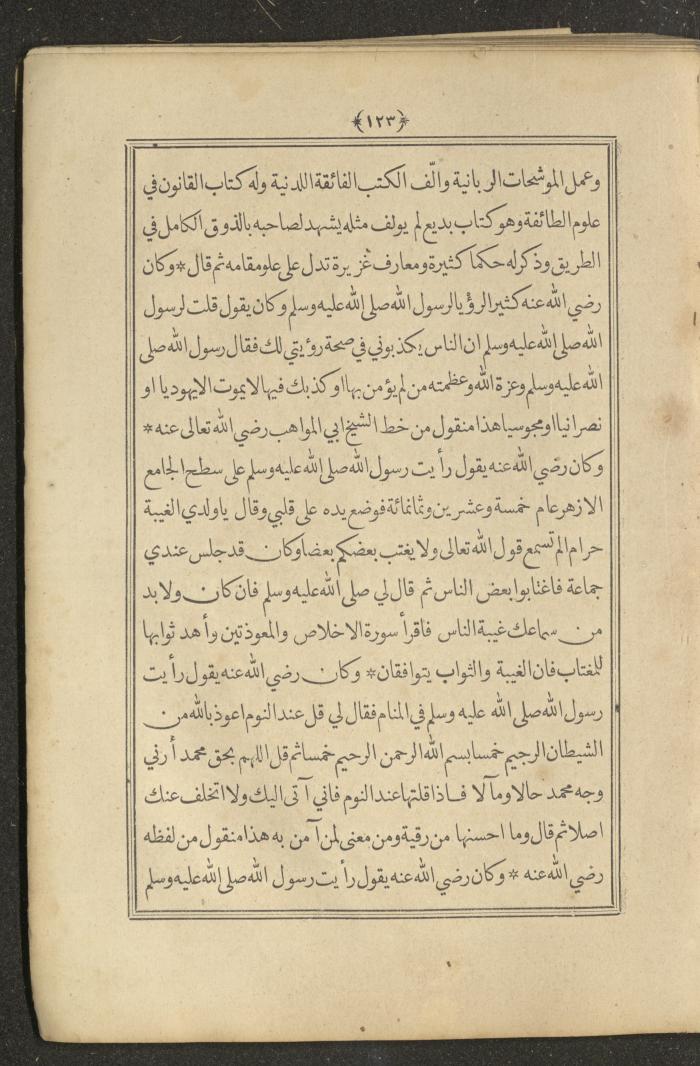 ﴿١٢٣﴾
وعمل الموشحات الربانية والّف الكتب الفائقة اللدنية وله كتاب القانون في
علوم الطائفة وهو كتاب بديع لم يولف مثله يشهد لصاحبه بالذوق الكامل في
الطريق وذكر له حكما كثيرة ومعارف غزيرة تدل على علو مقامه ثم قال * وكان
رضي الله عنه كثير الرؤيا لرسول الله صلى الله عليه وسلم وكان يقول قلت لرسول
الله صلى الله عليه وسلم ان الناس يكذبوني في صحة رؤيتي لك فقال رسول الله صلى
الله عليه وسلم وعزة الله وعظمته من لم يؤمن بها او كذبك فيها لا يموت الا يهوديا او
نصرانيا او مجوسيا هذا منقول من خط الشيخ ابي المواهب رضي الله تعالى عنه *
وكان رضي الله عنه يقول رأيت رسول الله صلى الله عليه وسلم على سطح الجامع
الازهر عام خمسة وعشرين وثمانمائة فوضع يده على قلبي وقال ياولدي الغيبة
حرام الم تسمع قول الله تعالى ولا يغتب بعضكم بعضا وكان قد جلس عندي
جماعة فاغتابوا بعض الناس ثم قال لي صلى الله عليه وسلم فان كان ولابد
من سماعك غيبة الناس فاقرأ سورة الاخلاص والمعوذتين وأهد ثوابها
للمغتاب فان الغيبة والثواب يتوافقان * وكان رضي الله عنه يقول رأيت
رسول الله صلى الله عليه وسلم في المنام فقال لي قل عند النوم اعوذ بالله من
الشيطان الرجيم خمسا بسم الله الرحمن الرحيم خمسا ثم قل اللهم بحق محمد أرني
وجه محمد حالا ومآلا فاذا قلتها عند النوم فاني آتى اليك ولا اتخلف عنك
اصلا ثم قال وما احسنها من رقية ومن معنى لمن آمن به هذا منقول من لفظه
رضي الله عنه * وكان رضي الله عنه يقول رأيت رسول الله صلى الله عليه وسلم